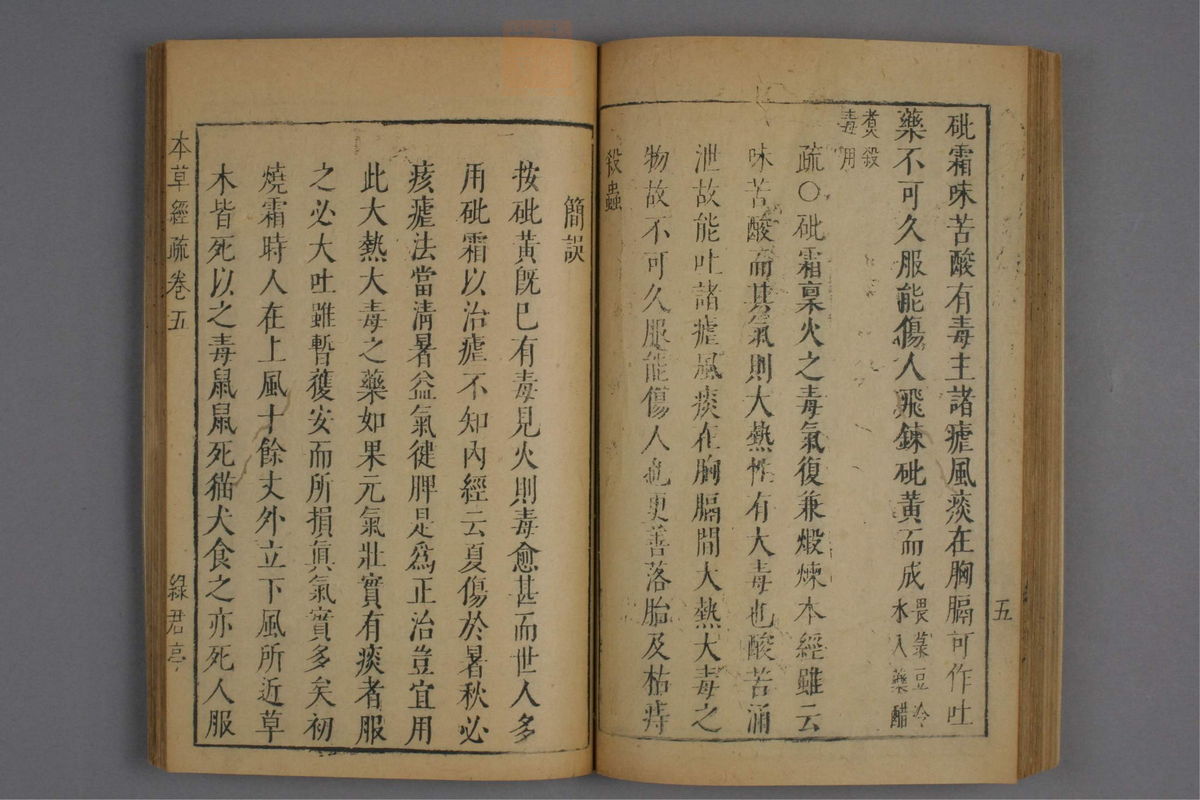 五
砒霜味苦酸有毒主諸瘧風痰在胸膈可作吐
藥不可久服能傷人飛鍊砒黃而成畏菉豆冷水入藥醋
煑殺毒用
疏○砒霜稟火之毒氣復兼煅煉本經雖云
味苦酸而其氣則大熱性有大毒也酸苦涌
泄故能吐諸瘧風痰在胸膈間大熱大毒之
物故不可久服能傷人也更善落胎及枯痔
殺蟲
簡誤
按砒黃旣巳有毒見火則毒愈甚而世人多
用砒霜以治瘧不知內經云夏傷於暑秋必
痎瘧法當淸暑益氣健脾是爲正治豈宜用
此大熱大毒之藥如果元氣壯實有痰者服
之必大吐雖暫獲安而所損眞氣實多矣初
燒霜時人在上風十餘丈外立下風所近草
木皆死以之毒鼠鼠死猫犬食之亦死人服
本草經疏卷五
綠君亭